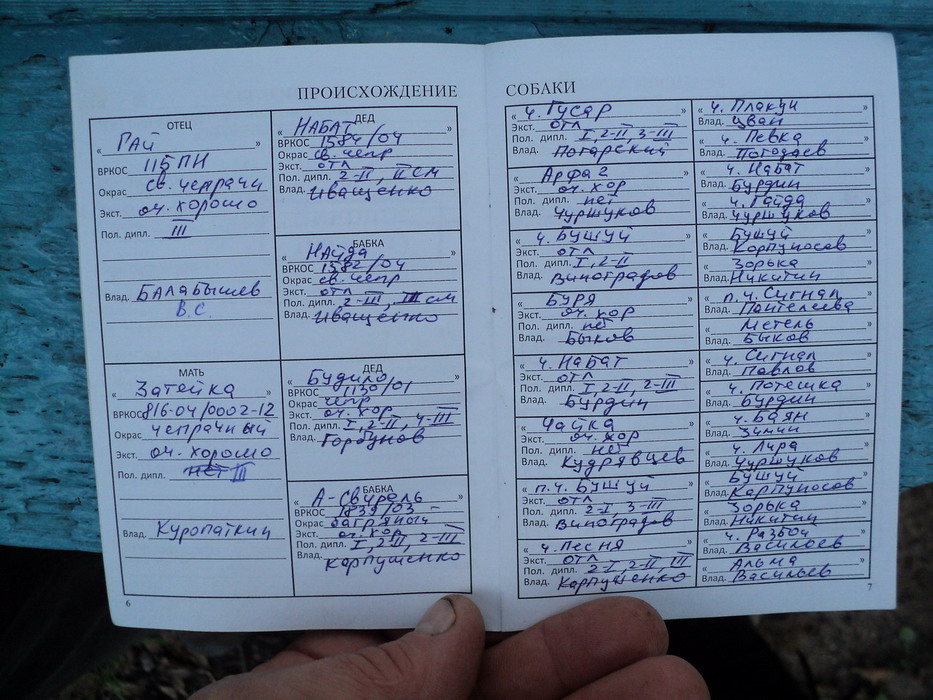 ПРОИСХОЖДЕНИЕ
ОТЕЦ
« Гай »
ВРКОС 115ПН
Окрас св. чепрачн
Экст. оч. хорошо
Пол. дипл. III
Влад. Балабышев
В.С.
МАТЬ
« Затейка »
ВРКОС 816-04/0002-12
Окрас чепрачный
Экст. оч. хорошо
Пол. дипл. нет III
Влад. Куропаткин
6
ДЕД
« НАБАТ »
ВРКОС 1584/04
Окрас св. чепр
Экст. отл
Пол. дипл. 2-II, II см
Влад. Иващенко
БАБКА
« Найда »
ВРКОС 1582/04
Окрас св. чепр
Экст. отл
Пол. дипл. 2-III, III см
Влад. Иващенко
ДЕД
« Будило »
ВРКОС 1130/01
Окрас чепр
Экст. оч. хор
Пол. дипл. I, 2-II, 4-III
Влад. Горбунов
БАБКА
« А-Свирель »
ВРКОС 1839/03
Окрас багряный
Экст. оч. хор
Пол. дипл. I, 2-II, 2-III
Влад. Карпушенко
СОБАКИ
« ч. Гусар »
Экст. отл
Пол. дипл. I, 2-II, 3-III
Влад. Погарский
« Арфа 2 »
Экст. оч. хор
Пол. дипл. нет
Влад. Чуршуков
« ч. Бушуй »
Экст. отл
Пол. дипл. I, 2-II
Влад. Виноградов
« Буря »
Экст. оч. хор
Пол. дипл. нет
Влад. Быков
« ч. Набат »
Экст. отл
Пол. дипл. I, 2-II, 2-III
Влад. Бурдин
« Чайка »
Экст. оч. хор
Пол. дипл. нет
Влад. Кудрявцев
« п.ч. Бушуй »
Экст. отл
Пол. дипл. 2-I, 3-III
Влад. Виноградов
« ч. Песня »
Экст. отл
Пол. дипл. 2-I, 2-II, III
Влад. Карпушенко
« ч. Плакун »
Влад. Цван
« ч. Певка »
Влад. Погодаев
« ч. Набат »
Влад. Бурдин
« ч. Гайда »
Влад. Чуршуков
« Бушуй »
Влад. Карпуносов
« Зорька »
Влад. Никитин
« п.ч. Сигнал »
Влад. Пантелеева
« Метель »
Влад. Быков
« ч. Сигнал »
Влад. Павлов
« ч. Потешка »
Влад. Бурдин
« ч. Баян »
Влад. Зимин
« ч. Лира »
Влад. Чуршуков
« Бушуй »
Влад. Карпуносов
« Зорька »
Влад. Никитин
« ч. Разбой »
Влад. Васильев
« Альма »
Влад. Васильев
7